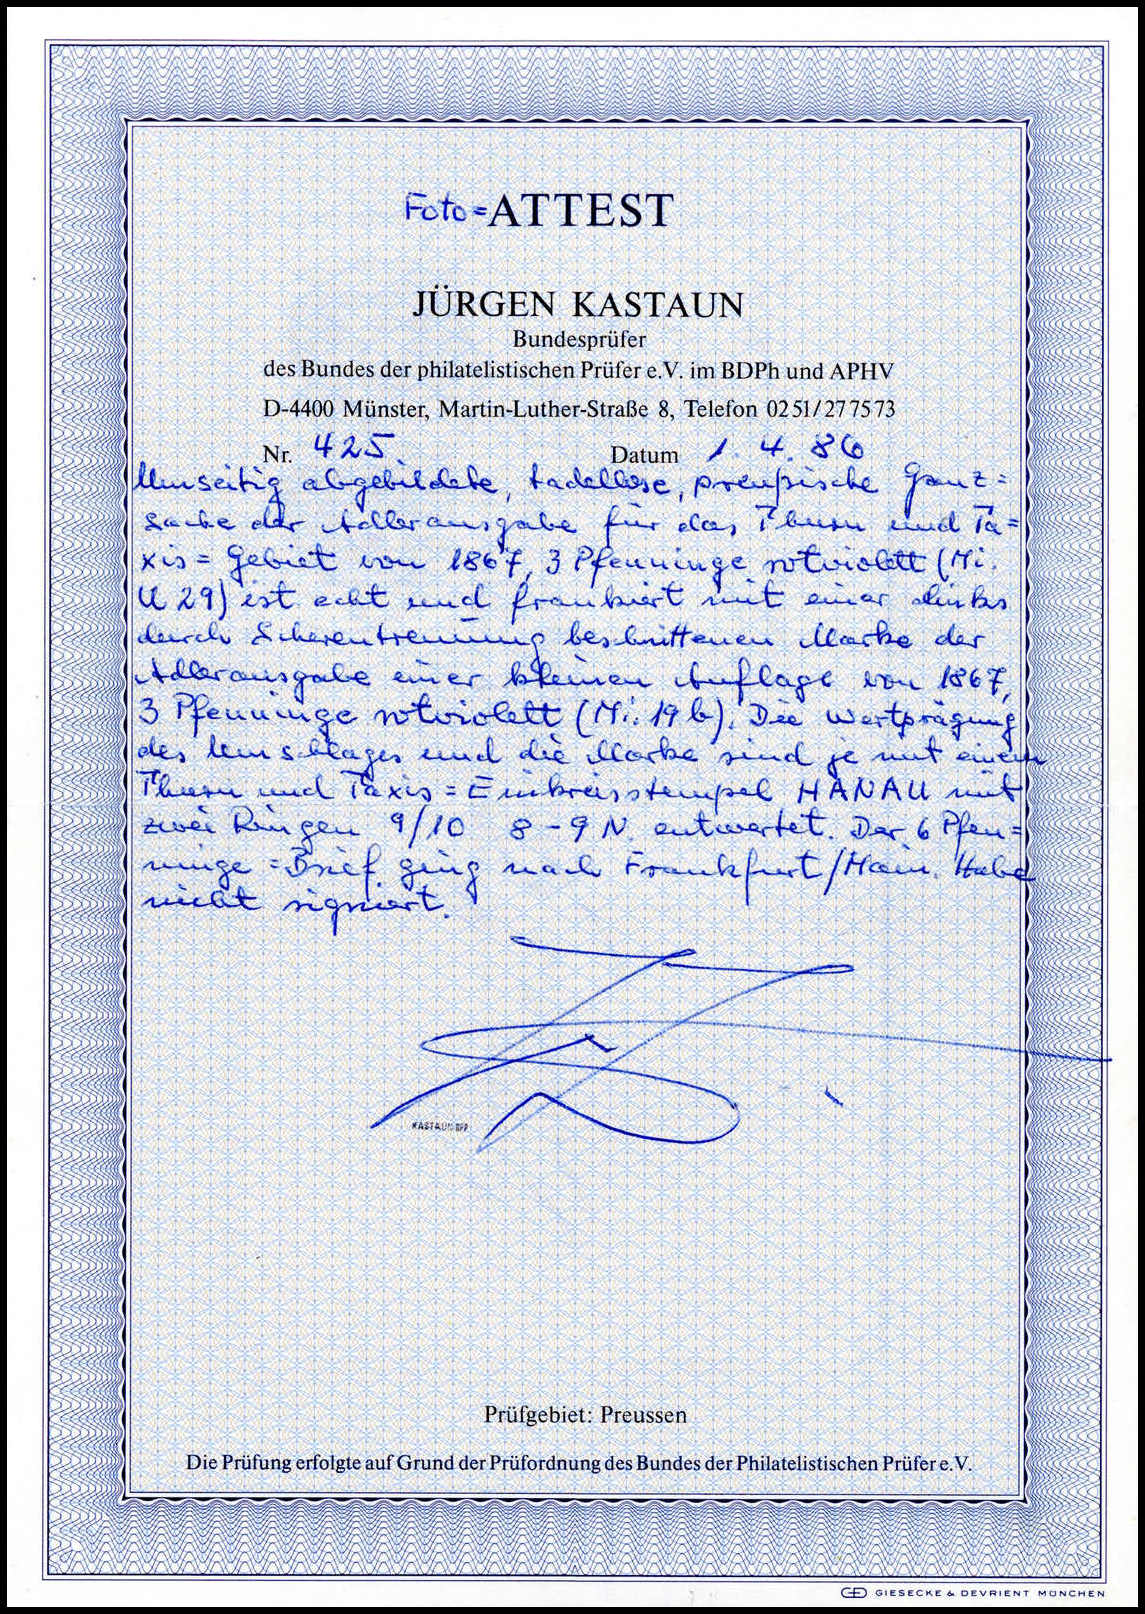 Foto=ATTEST
JÜRGEN KASTAUN
Bundesprüfer
des Bundes der philatelistischen Prüfer e.V. im BDPh und APHV
D-4400 Münster, Martin-Luther-Straße 8, Telefon 02 51/27 75 73
Nr. 425. Datum 1. 4. 86
Umseitig abgebildete, tadellose, preußische Ganz=
sache der Adlerausgabe für das Thurn und Ta=
xis=Gebiet von 1867, 3 Pfenninge rotviolett (Mi.
U 29) ist echt und frankiert mit einer links
durch Scherentrennung beschnittenen Marke der
Adlerausgabe einer kleinen Auflage von 1867,
3 Pfenninge rotviolett (Mi. 19 b). Die Wertprägung
des Umschlages und die Marke sind je mit einem
Thurn und Taxis=Einkreisstempel HANAU mit
zwei Ringen 9/10 8-9 N. entwertet. Der 6 Pfen=
ninge=Brief ging nach Frankfurt/Main. Habe
nicht signiert.
KASTAUN BPP
Prüfgebiet: Preussen
Die Prüfung erfolgte auf Grund der Prüfordnung des Bundes der Philatelistischen Prüfer e.V.
GIESECKE & DEVRIENT MÜNCHEN